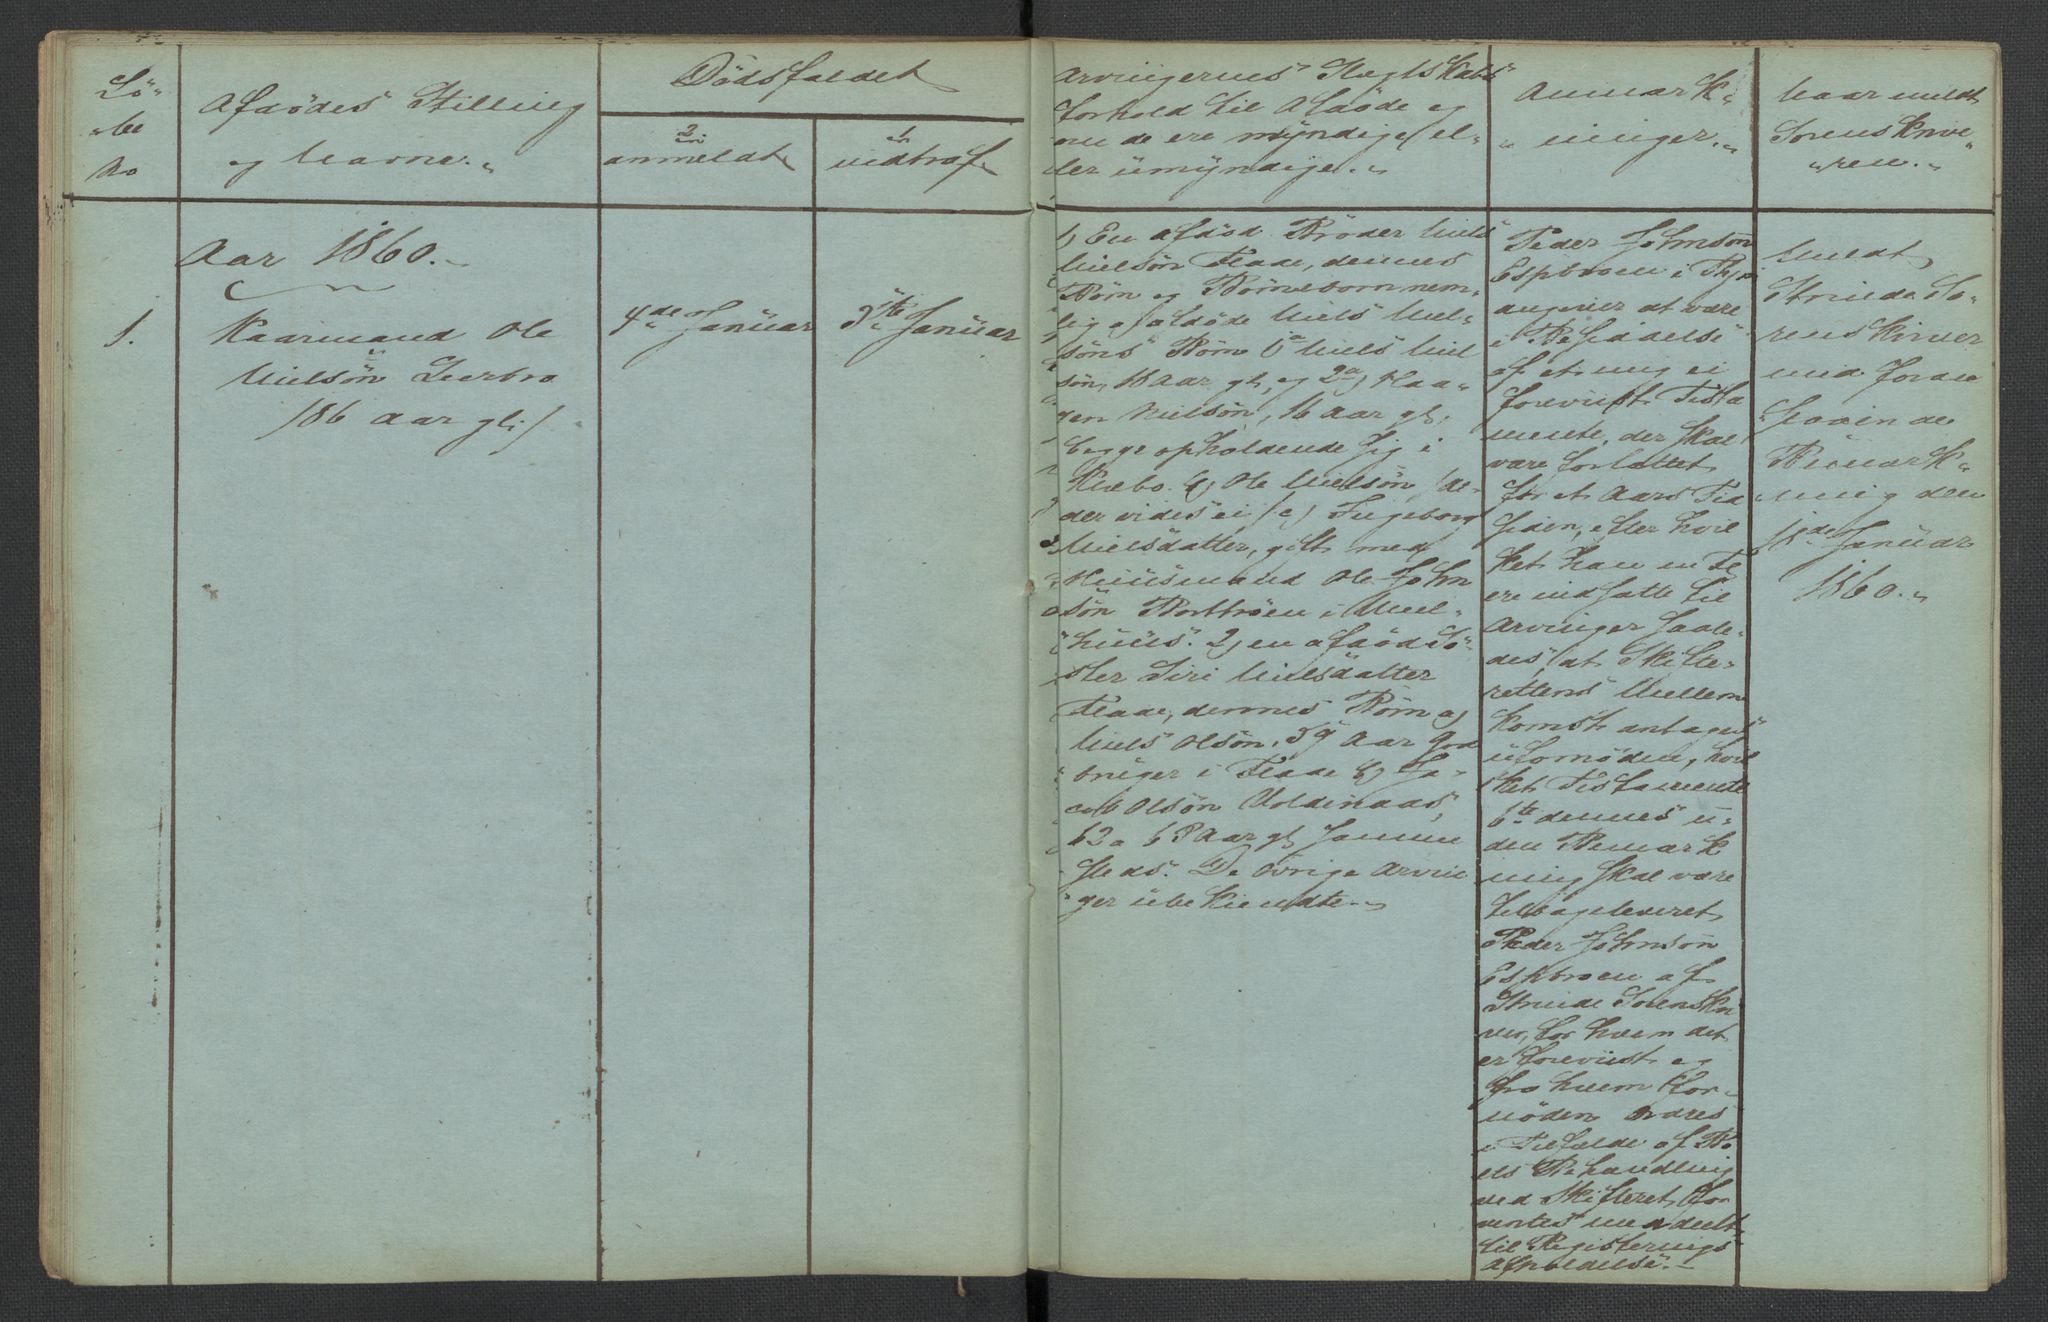 Lö-
be
No
Afdödes Stilling
og Navne.
Dödsfaldet
2
anmeldt
1
indtraf
Arvingernes Slægtskabs
forhold til Afdöde og
om de ere myndige el-
ler umyndige.
Anmærk-
ninger.
Naar meldt
Sorenskrive
ren.
Aar 1860.
1.
Kaarmand Ole
Nielsön
/86 Aar gl:/
4de Januar
3die Januar
1) En afdöd Broder Niels
Nielsön Flaae, dennes
Börn og Börnebörn nem-
lig a, afdöde Niels Niel-
söns Börn 1a Niels Niel
sön, 18 Aar gl, og 2a, Haa-
gen Nielsön, 16 Aar gl,
begge opholdende sig i
b, Ole Nielsön /le-
der vides ei/ c, Ingeborg
Nielsdatter, gift med
Huusmand Ole John
sön i Meel-
huus. 2, en afdöd Sö-
ster Siri Nielsdatter
Flaae, dennes Börn a,
Niels Olsön, 59 Aar Gaard
bruger i Flaae b, Ja-
cob Olsön
62 a 63 Aar gl, samme
steds. De övrige Arvin
ger ubekiendte.
Peder Johnsön
Espbroen i
angiver at være
i Besiddelse
af et mig ei
foreviist Testa
mente, der skal
være forfattet
for et Aars Tid
siden, efter hvil
ket han m Fl
ere indsatte til
Arvinger saale-
des, at Skifte-
rettens Mellem
komst antages
ufornöden, hvil
ket Testamente
6te dennes u-
den Bemærk
ning skal være
tilbageleveret
Peder Johnsön
Espbroen af
Strinde Sorenskri
ver, for hvem det
er foreviist og
fra hvem for-
nöden Ordres
i Tilfælde af Bo
ets Behandling
ved Skifteret for
ventes meddeelt
til Registerings
Afholdelse.
Meldt
Strinde So-
renskriver
med foran
staaende
Bemærk-
ning den
Januar
1860.